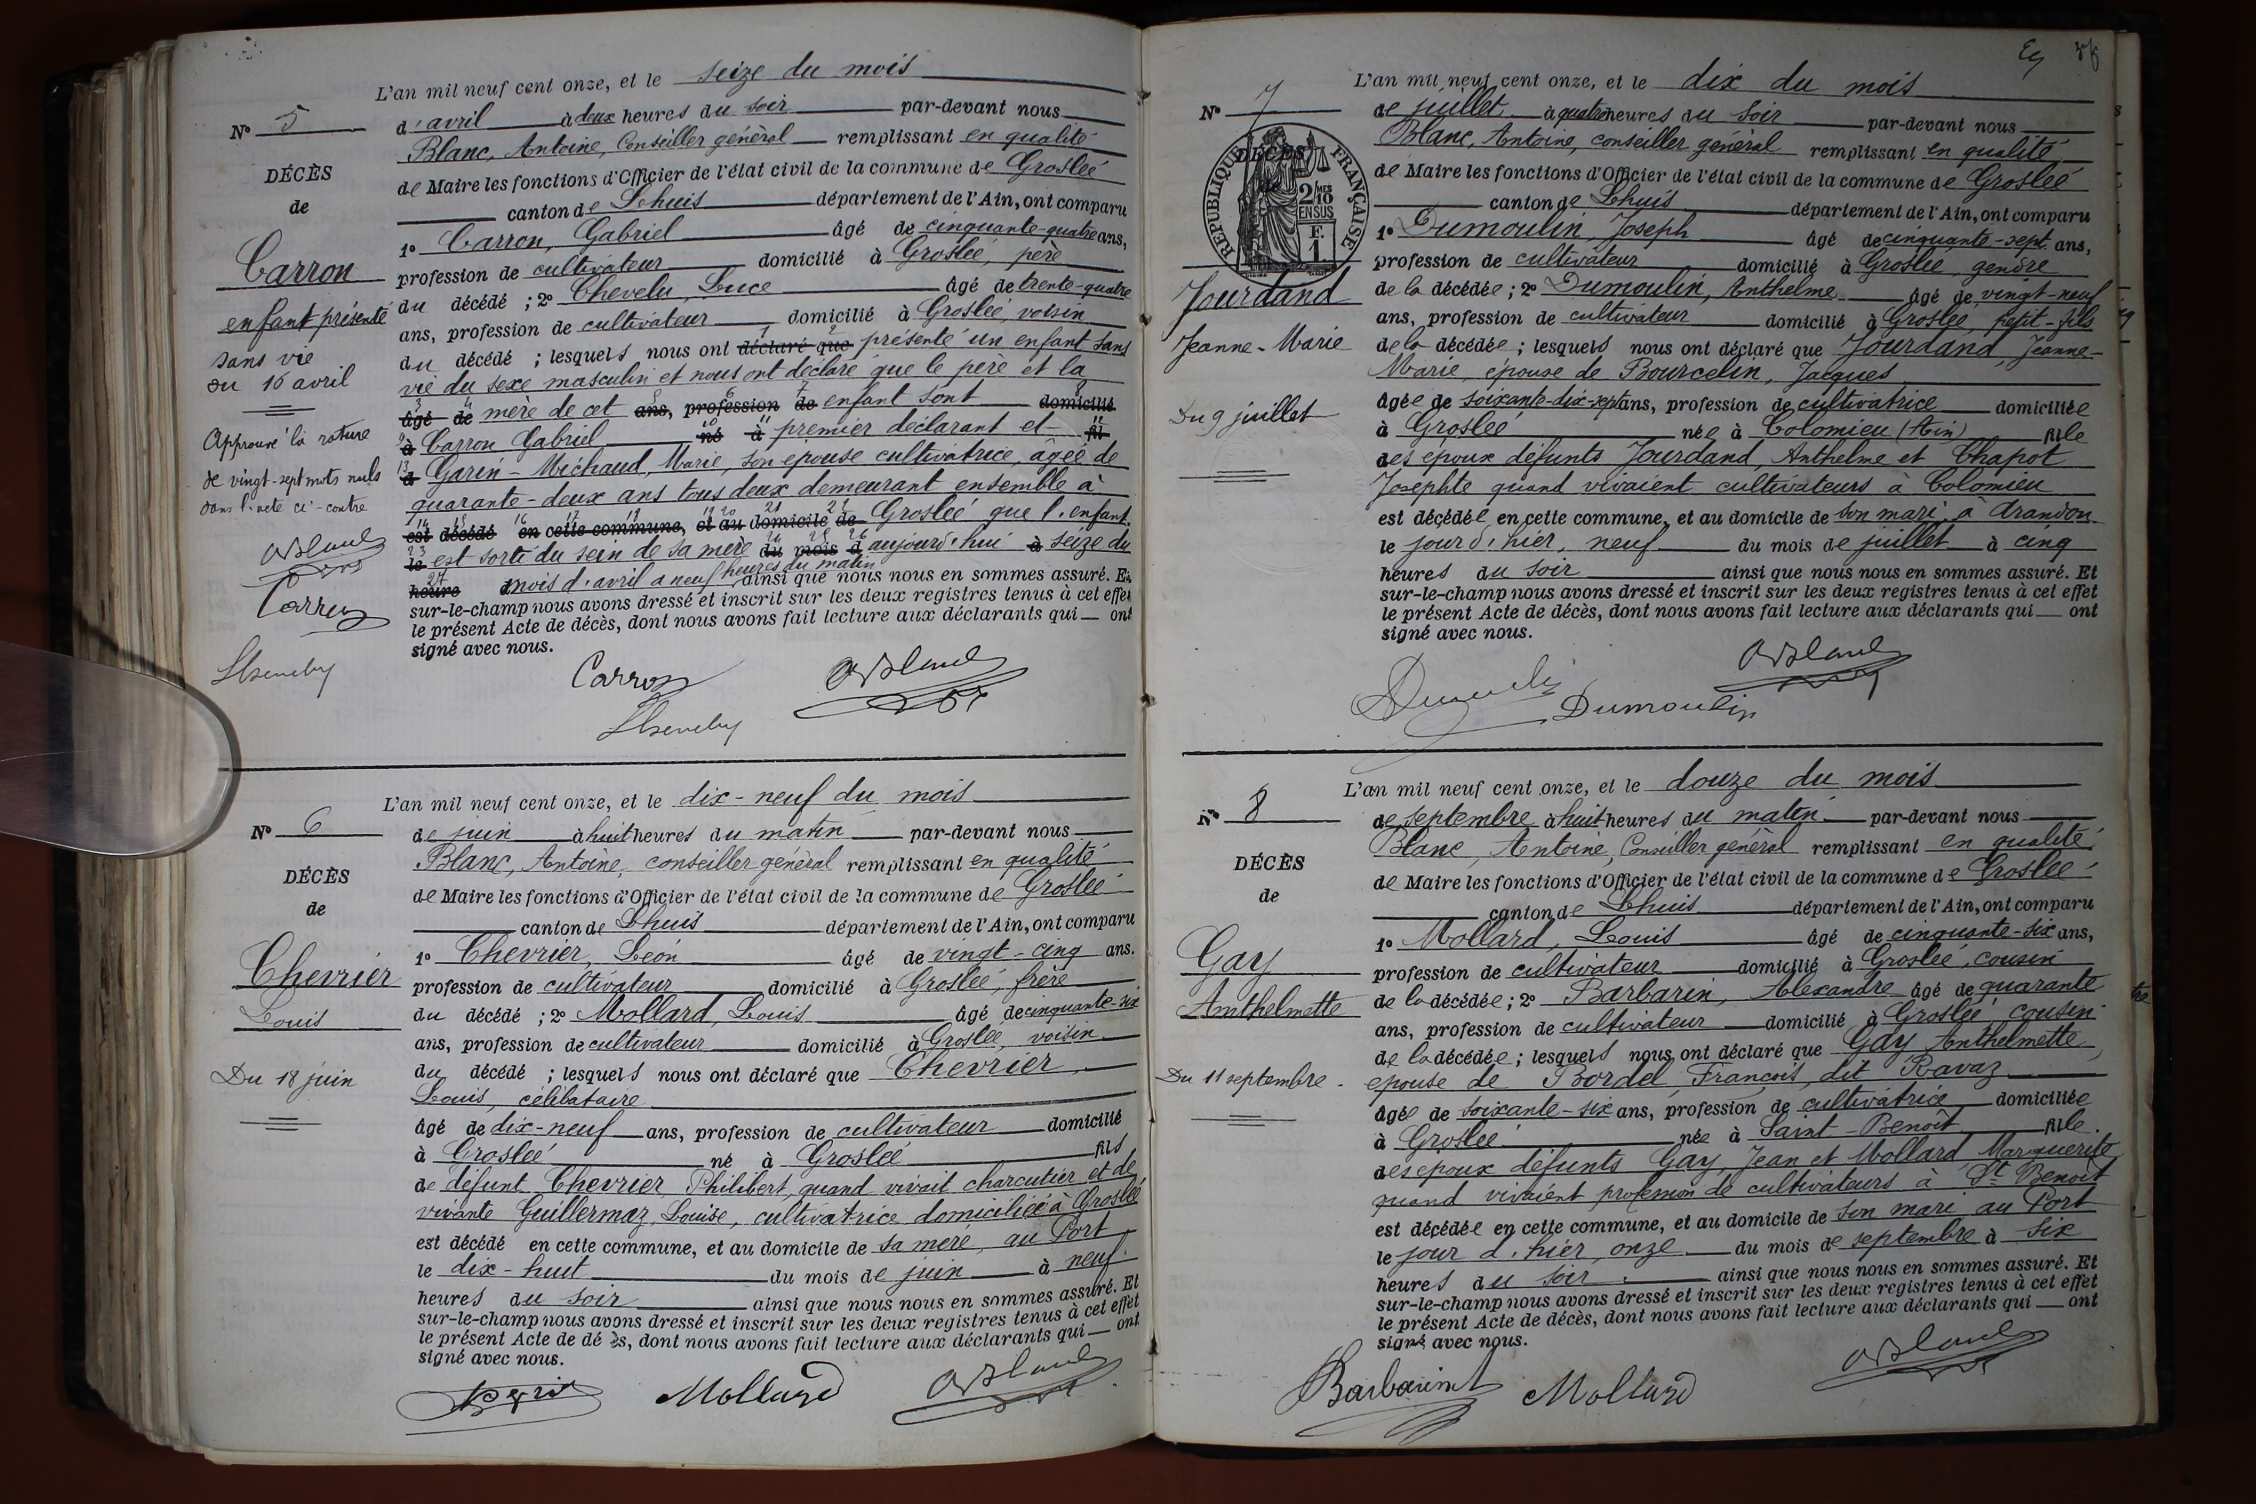 L'an mil neuf cent onze, et le seize du mois
N° 5
d'avril à deux heures du soir par-devant nous
Blanc, Antoine, Conseiller général remplissant en qualité
DÉCÈS
de Maire les fonctions d'Officier de l'état civil de la commune de Groslée
de
canton de Lhuis département de l'Ain, ont comparu
1° Carron, Gabriel âgé de cinquante-quatre ans,
Carron
profession de cultivateur domicilié à Groslée, père
enfant présenté
du décédé ; 2° Chevelu, Luce âgé de trente-quatre
ans, profession de cultivateur domicilié à Groslée, voisin
sans vie
du décédé ; lesquels nous ont déclaré que présenté un enfant sans
du 16 avril
vie du sexe masculin et nous ont déclaré que le père et la
âgé de mère de cet ans, profession de enfant sont domicilié
Approuvé la rature
à Carron Gabriel né à premier déclarant et fil
de vingt-sept mots nuls
à Garin-Michaud, Marie, son épouse cultivatrice, âgée de
dans l'acte ci-contre
quarante-deux ans tous deux demeurant ensemble à
est décédé en cette commune, et au domicile de Groslée que l'enfant
ABlanc
le est sorti du sein de sa mère du mois d aujourd'hui à seize du
heure mois d'avril a neuf heures du matin ainsi que nous nous en sommes assuré. Et
Carron
sur-le-champ nous avons dressé et inscrit sur les deux registres tenus à cet effet
le présent Acte de décès, dont nous avons fait lecture aux déclarants qui ont
signé avec nous.
Carron ABlanc
L'an mil neuf cent onze, et le dix-neuf du mois
N° 6
de juin à huit heures du matin par-devant nous
Blanc, Antoine, conseiller général remplissant en qualité
DÉCÈS
de Maire les fonctions d'Officier de l'état civil de la commune de Groslée
de
canton de Lhuis département de l'Ain, ont comparu
1° Chevrier, Léon âgé de vingt-cinq ans.
Chevrier
profession de cultivateur domicilié à Groslée, frère
Louis
du décédé ; 2° Mollard, Louis âgé de cinquante-six
ans, profession de cultivateur domicilié à Groslée, voisin
Du 18 juin
du décédé ; lesquels nous ont déclaré que Chevrier
Louis, célibataire
âgé de dix-neuf ans, profession de cultivateur domicilié
à Groslée né à Groslée fils
de défunt Chevrier Philibert, quand vivait charcutier et de
vivante Guillermaz, Louise, cultivatrice domiciliée à Groslée
est décédé en cette commune, et au domicile de sa mère, au Port
le dix-huit du mois de juin à neuf
heures du soir ainsi que nous nous en sommes assuré. Et
sur-le-champ nous avons dressé et inscrit sur les deux registres tenus à cet effet
le présent Acte de dé ès, dont nous avons fait lecture aux déclarants qui ont
signé avec nous.
Mollard ABlanc
L'an mil neuf cent onze, et le dix du mois
N° 7
de juillet à quatre heures du soir par-devant nous
Blanc, Antoine, conseiller général remplissant en qualité
DÉCÈS
RÉPUBLIQUE FRANÇAISE
2/10 MES
EN SUS
F.
1
de Maire les fonctions d'Officier de l'état civil de la commune de Groslée
canton de Lhuis département de l'Ain, ont comparu
1° Dumoulin, Joseph âgé de cinquante-sept ans,
profession de cultivateur domicilié à Groslée gendre
Jourdand
de la décédée ; 2° Dumoulin, Anthelme âgé de vingt-neuf
ans, profession de cultivateur domicilié à Groslée, petit-fils
Jeanne-Marie
de la décédée ; lesquels nous ont déclaré que Jourdand, Jeanne-
Marie, épouse de Bourcelin, Jacques
Du 9 juillet
âgée de soixante-dix-sept ans, profession de cultivatrice domiciliée
à Groslée née à Colomieu (Ain) fille
des époux défunts Jourdand, Anthelme et Chapot
Josephte quand vivaient cultivateurs à Colomieu
est décédée en cette commune, et au domicile de son mari à Arandon
le jour d'hier, neuf du mois de juillet à cinq
heures du soir ainsi que nous nous en sommes assuré. Et
sur-le-champ nous avons dressé et inscrit sur les deux registres tenus à cet effet
le présent Acte de décès, dont nous avons fait lecture aux déclarants qui ont
signé avec nous.
ABlanc
Dumoulin Dumoulin
L'an mil neuf cent onze, et le douze du mois
N° 8
de septembre à huit heures du matin par-devant nous
Blanc, Antoine, Conseiller général remplissant en qualité
DÉCÈS
de Maire les fonctions d'Officier de l'état civil de la commune de Groslée
de
canton de Lhuis département de l'Ain, ont comparu
1° Mollard, Louis âgé de cinquante-six ans,
Gay
profession de cultivateur domicilié à Groslée, cousin
Anthelmette
de la décédée ; 2° Barbarin, Alexandre âgé de quarante
ans, profession de cultivateur domicilié à Groslée, cousin
de la décédée ; lesquels nous ont déclaré que Gay Anthelmette,
Du 11 septembre
épouse de Bordel François, dit Ravaz
âgée de soixante-six ans, profession de cultivatrice domiciliée
à Groslée née à Saint-Benoît fille
des époux défunts Gay, Jean et Mollard Marguerite
quand vivaient profession de cultivateurs à St Benoît
est décédée en cette commune, et au domicile de son mari au Port
le jour d'hier, onze du mois de septembre à six
heures du soir ainsi que nous nous en sommes assuré. Et
sur-le-champ nous avons dressé et inscrit sur les deux registres tenus à cet effet
le présent Acte de décès, dont nous avons fait lecture aux déclarants qui ont
signé avec nous.
Barbarin Mollard ABlanc